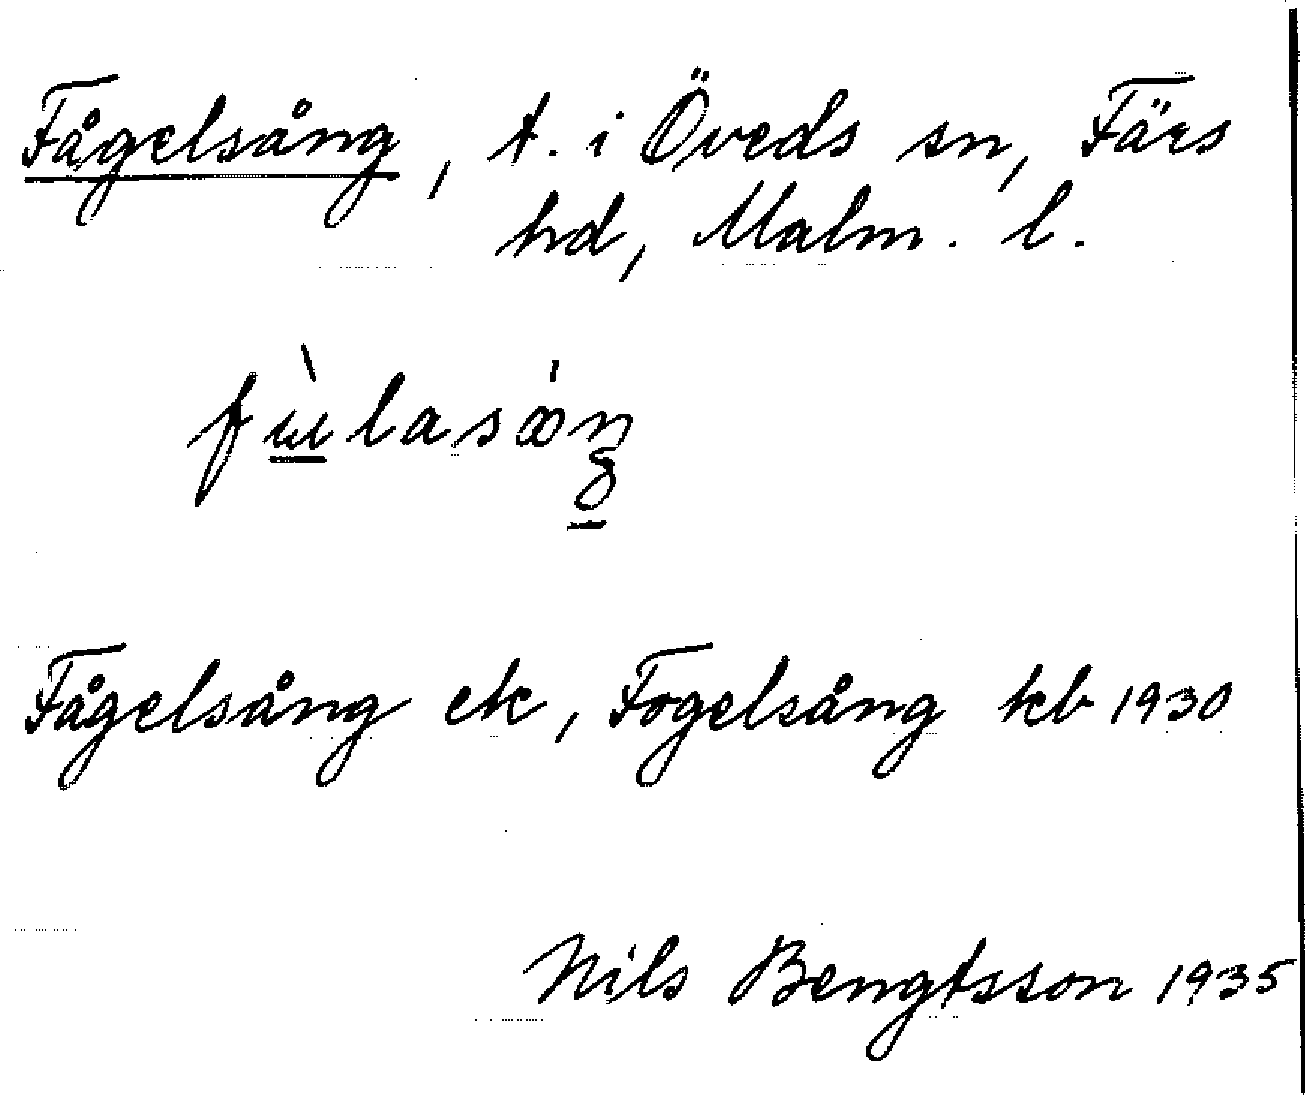 Fågelsång, t. i Öveds sn, Färs
hd, Malm. l.
fɯ̀lasáŋ
Fågelsång ek, Fogelsång kb 1930
Nils Bengtsson 1935